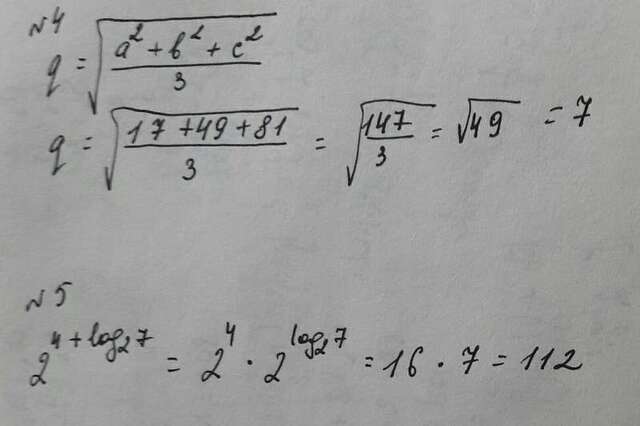 №4
q = √((a² + b² + c²)/3)
q = √((17 + 49 + 81)/3) = √(147/3) = √49 = 7
№5
2^(4 + log₂7) = 2⁴ · 2^(log₂7) = 16 · 7 = 112